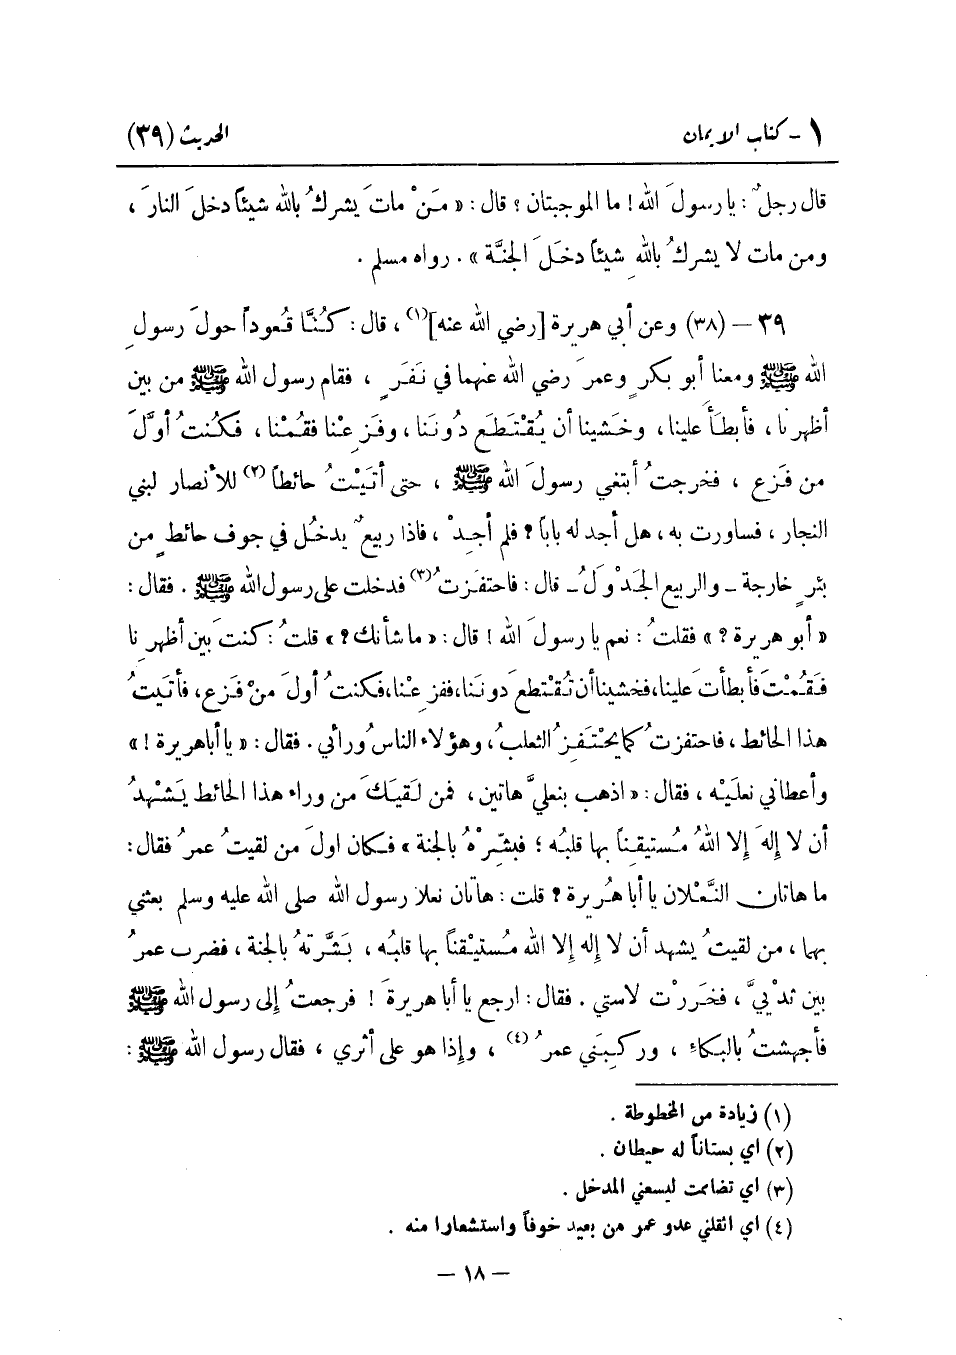 ١ - كتاب الايمان
الحديث (٣٩)
قال رجلٌ : يا رسولَ الله ! ما الموجبتان ؟ قال : « مَنْ ماتَ يشركُ بالله شيئاً دخلَ النارَ ،
ومن مات لا يشركُ باللهِ شيئاً دخَلَ الجنَّة » . رواه مسلم .
٣٩ – (٣٨) وعن أبي هريرة [رضي الله عنه](١) ، قال : كُنَّا قُعوداً حولَ رسولِ
الله ﷺ ومعنا أبو بكرٍ وعمرَ رضي الله عنهما في نَفَرٍ ، فقام رسول الله ﷺ من بين
أظهرِنا ، فأبطَأَ علينا ، وخَشينا أن يُقْتَطَعَ دُونَنا ، وفَزِعْنا فقُمْنا ، فكُنتُ أوَّلَ
من فَزِع ، فخرجتُ أبتغي رسولَ الله ﷺ ، حتى أتَيْتُ حائطاً(٢) للأنصار لبني
النجار ، فساورت به ، هل أجد له باباً ؟ فلم أجِدْ ، فاذا ربيعٌ يدخُل في جوف حائطٍ من
بئرٍ خارجة - والربيع الجَدْوَلُ - قال : فاحتفَزتُ(٣) فدخلت على رسول الله ﷺ . فقال :
« أبو هريرة ؟ » فقلتُ : نعم يا رسولَ الله ! قال : « ما شأنك ؟ » قلتُ : كنتَ بين أظهرِنا
فَقُمْتَ فأبطأتَ علينا، فخشينا أن تُقْتطعَ دونَنا، ففزِعْنا، فكنتُ أولَ منْ فَزِع، فأتَيتُ
هذا الحائط ، فاحتفزتُ كما يحْتَفِزُ الثعلبُ ، وهؤلاء الناسُ ورائي . فقال : « يا أبا هريرة ! »
وأعطاني نعلَيْه ، فقال : « اذهب بنعليَّ هاتين ، فمن لَقيَكَ من وراء هذا الحائط يَشْهدُ
أن لا إلهَ إلا اللهُ مُستيقِناً بها قلبُه ؛ فبشِّرْهُ بالجنة » فكان اولَ من لقيتُ عمرُ فقال :
ما هاتان النَّعْلان يا أبا هُريرة ؟ قلت : هاتان نعلا رسول الله صلى الله عليه وسلم بعثني
بهما ، من لقيتُ يشهد أن لا إله إلا الله مُستيقْناً بها قلبُه ، بَشَّرتهُ بالجنة ، فضرب عمرُ
بين ثدْيَيَّ ، فخَررْت لاستي . فقال : ارجع يا أبا هريرةَ ! فرجعتُ إلى رسول الله ﷺ
فأجهشتُ بالبكاءِ ، وركِبَني عمرُ(٤) ، وإذا هو على أثري ، فقال رسول الله ﷺ :
(١) زيادة من المخطوطة .
(٢) اي بستاناً له حيطان .
(٣) اي تضاممت ليسعني المدخل .
(٤) اي اثقلني عدو عمر من بعيد خوفاً واستشعارا منه .
— ١٨ —